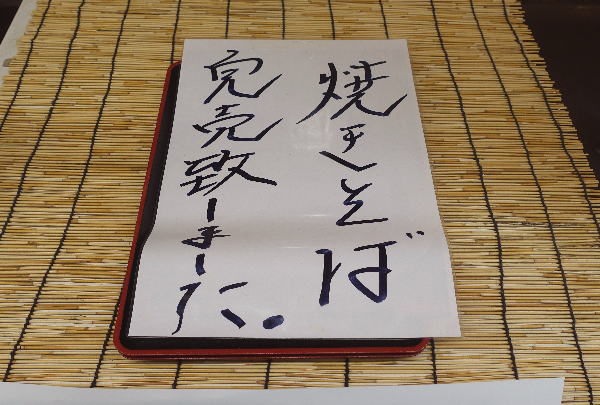 焼きそば
完売致しました。